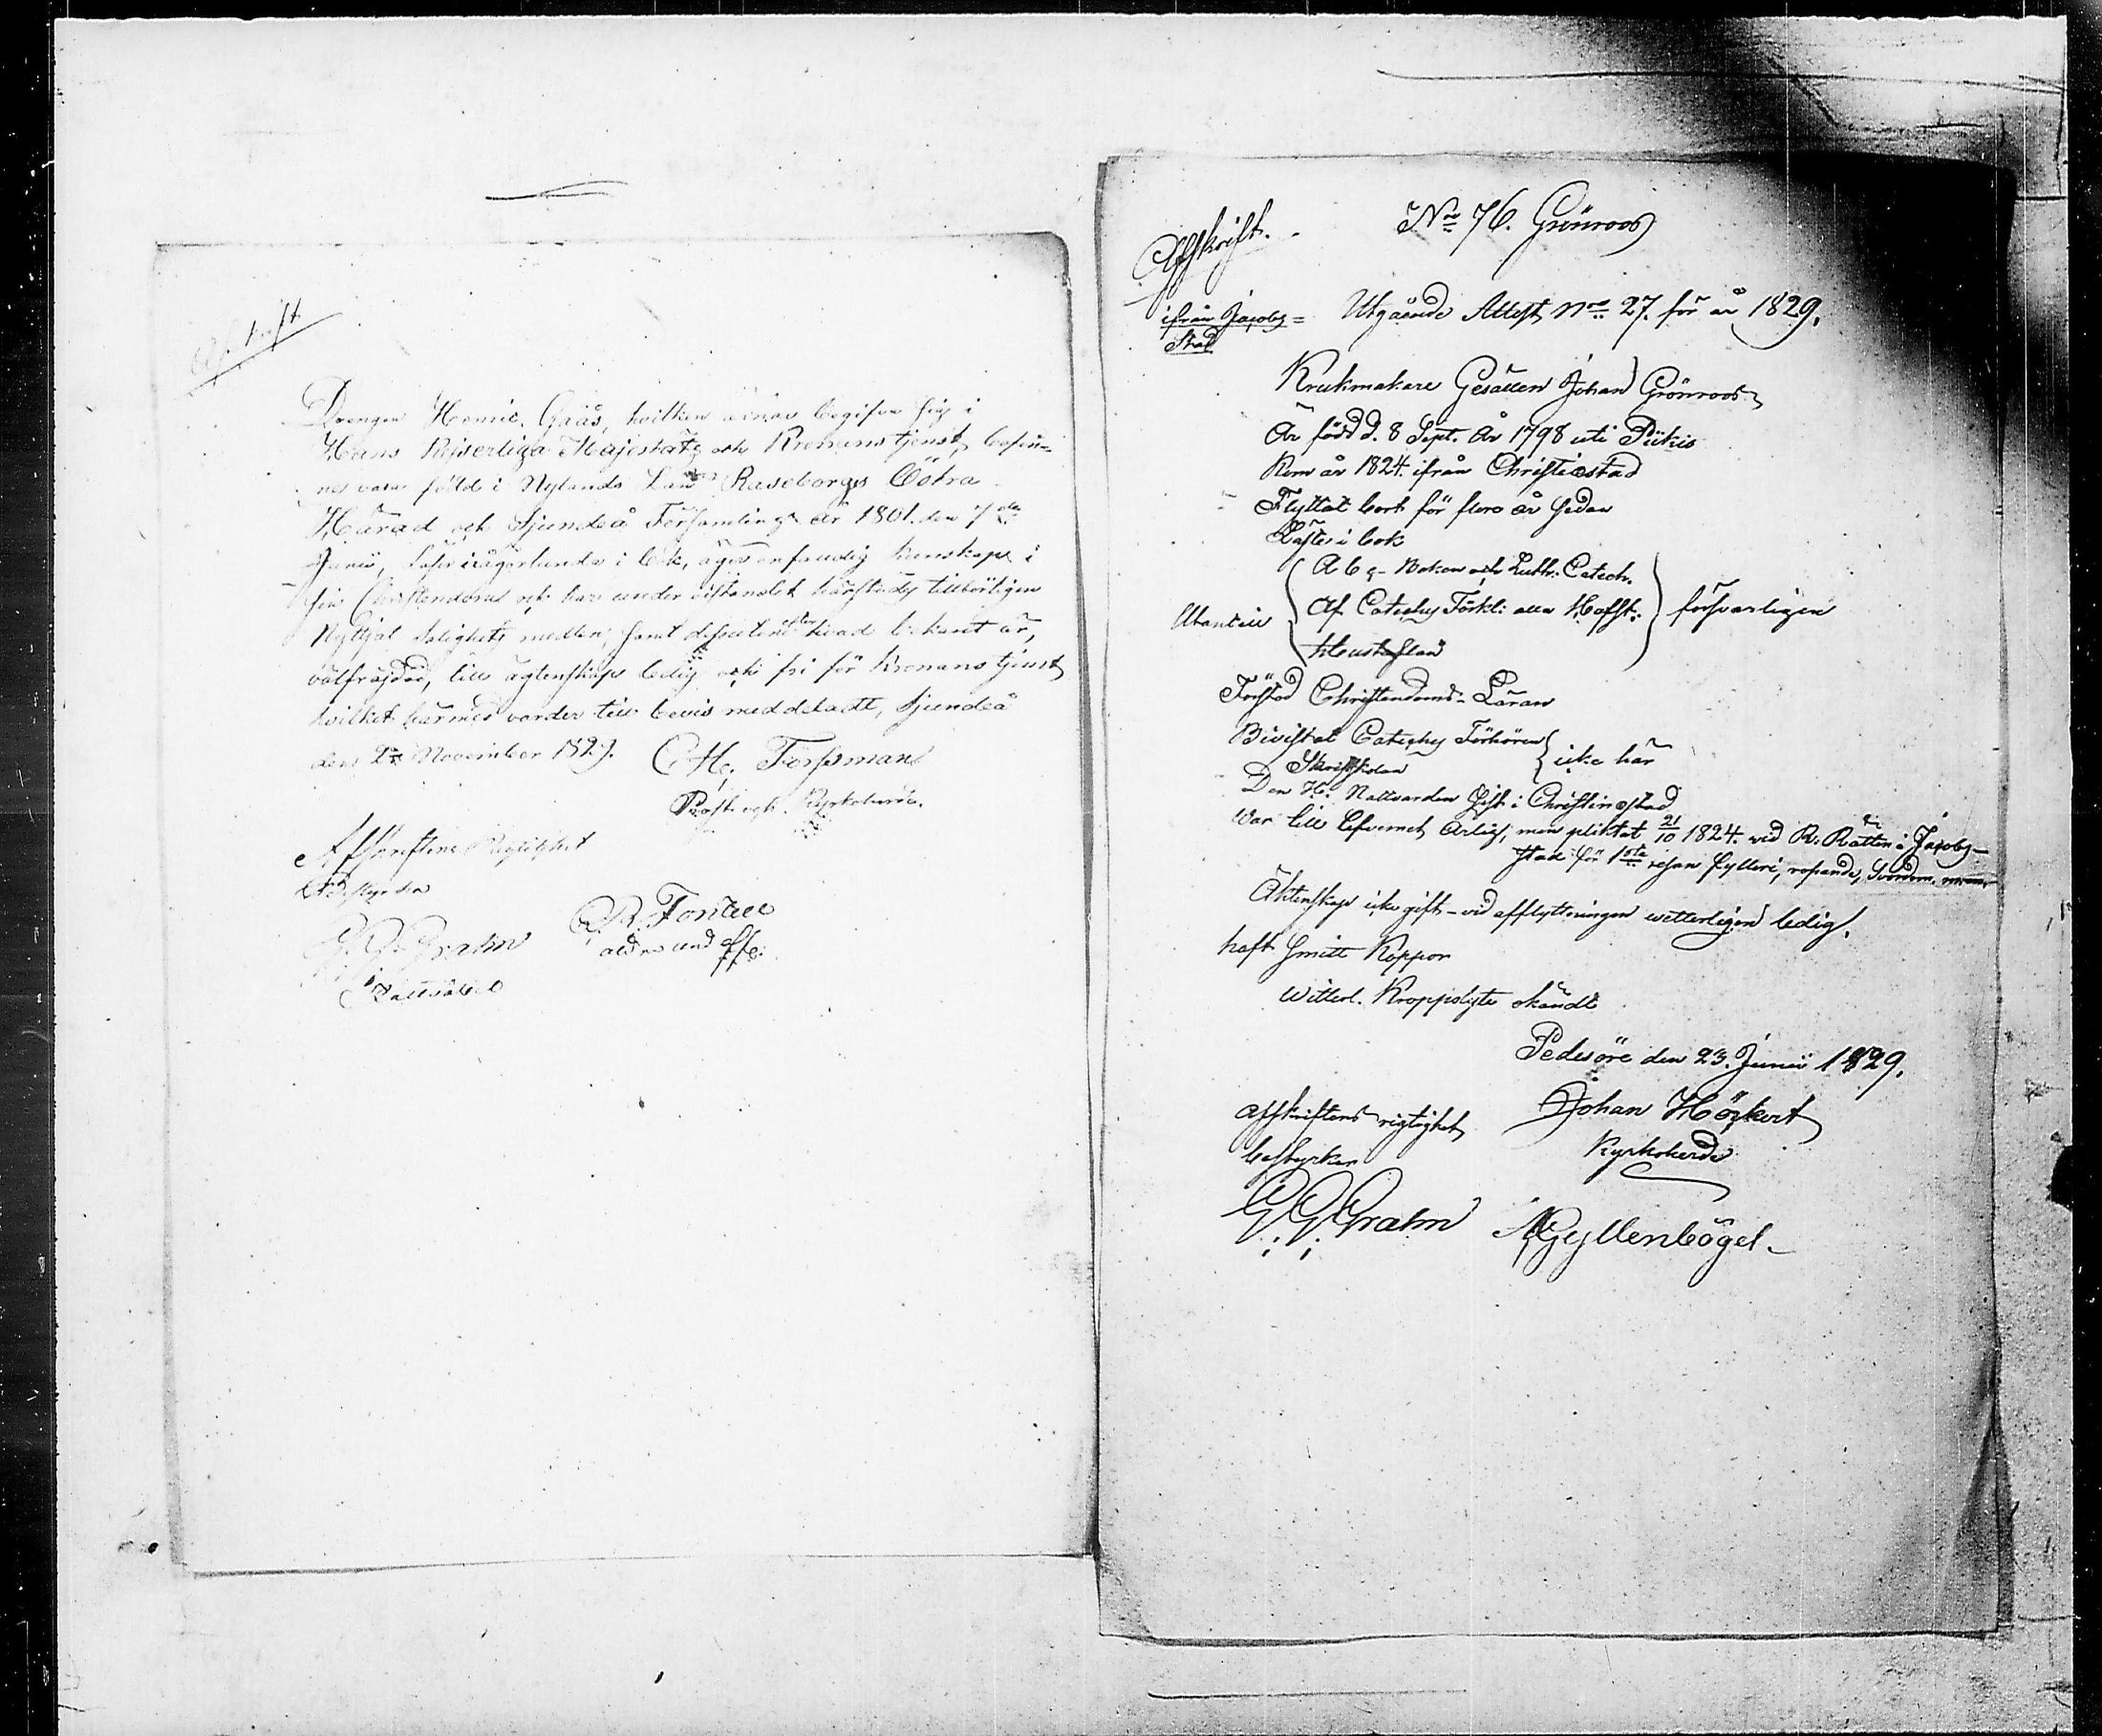 Afskrift
Drengen Henric Gåås, hvilken ärnar begifva sig i
Hans Kejserliga Majestäts och Kronans tjenst, befin-
nes vara född i Nylands Län Raseborgs Östra
Härad och Sjundeå Församling år 1801. den 7de
Junii, läser i bok, äger enfaldig kunskap i
sin Christendom och har under vistandet härstädes tillbörligen
Nyttjat Salighets medlen, samt dessutom hvad bekant är,
välfräjdad, till ägtenskap ledig och fri för Kronans tjenst
hvilket härmed varder till bevis meddeladt, Sjundeå
den 2 November 1829. C. H. Forssman
Prost och Kyrkoherde.
Afskriftens Rigtighet
Bestyrka
G. G. Grahn
R. Fontell
Fältväbel
No 76. Grönroos
Afskrift.
ifrån Jacobs-
Stad
Utgående Attest No 27. för år 1829.
Krukmakare Gesällen Johan Grönroos
Är född d. 8 Sept. År 1798 uti Piikis
Kom år 1824. ifrån Christinæstad
Flyttat bort för flere år sedan
Läser i bok
Abc-Boken och Luth. Catech.
Utantill Af Cateches Förkl: alla Hufst: försvarligen
Hustaflan
Förstår Christendoms-Läran
Bivistat Cateches Förhören
Skriftskolan icke här
Den H. Nattvarden gift i Christinæstad
War till lefvernet ärlig, men pliktat 21/10 1824. vid R. Rätten i Jacobs-
stad för 1sta resan fylleri, ropande, svordom
Äktenskap icke gift - vid afflyttningen wetterligen ledig.
haft Smitt Koppor
Witterl. Kroppslyte okändt
Pedersöre den 23. Junii 1829.
Johan Höckert
Kyrkoherde
Afskriftens rigtighet
bestyrker
G. G. Grahn A Gyllenbögel